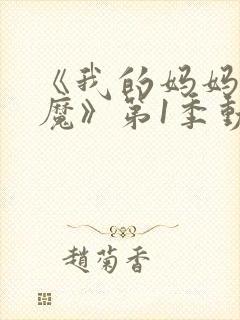 《我的妈妈
魔》第1季動
趙菊香